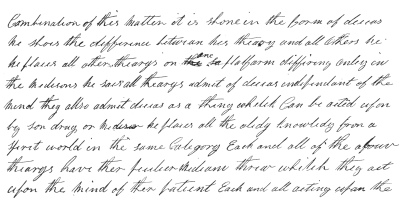 Combination of this matter it is shone in the form of diseas
He shows the difference between his theory and all others he
he places all other theorys on the one platform differing onley in
the medisons he saies all theorys admit of diseas independant of the
mind they allso admit diseas as a thing whitch can be acted upon
by som drug or medison he places all the oldg knowledg from a
first world in the same Category Each and all of the afour
theorys have ther peculier medium threw whitch they act
upon the mind of ther patient Each and all acting upon the